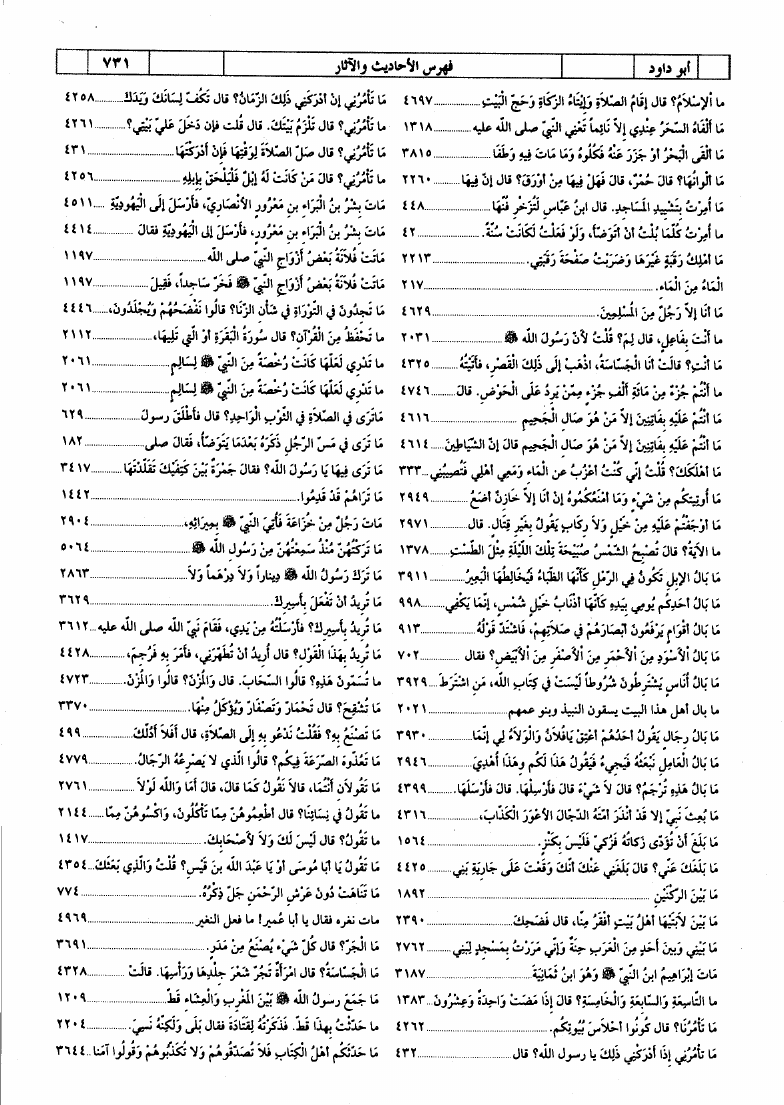 أبو داود
فهرس الأحاديث والآثار
٧٣١
ما الإِسْلَامُ؟ قال إقَامُ الصَّلاَةِ وَإيتَاءُ الزَّكَاةِ وَحَجّ الْبَيْتِ ٤٦٩٧
مَا أَلْفَاهُ السّحَرُ عِنْدِي إلاّ نَائِماً تَعْنِي النّبيّ صلى الله عليه ١٣١٨
مَا ألْقَى الْبَحْرُ أوْ جَزَرَ عَنْهُ فَكُلُوهُ وَمَا مَاتَ فِيهِ وَطَفَا ٣٨١٥
مَا ألْوَانُهَا؟ قَالَ: حُمْرٌ، قَالَ فَهَلْ فِيهَا مِنْ أوْرَقَ؟ قَالَ إنّ فِيهَا ٢٢٦٠
مَا أُمِرْتُ بِتَشْيِيدِ المَسَاجِدِ. قال ابنُ عَبّاسٍ لَتُزَخْرِفُنّهَا ٤٤٨
مَا أُمِرْتُ كُلّمَا بُلْتُ أنْ أتَوَضّأَ، وَلَوْ فَعَلْتُ لَكَانَتْ سُنّةً. ٤٢
مَا أمْلِكُ رَقَبَةً غَيْرَهَا وَضَرَبْتُ صَفْحَةَ رَقَبَتِي. ٢٢١٣
الْمَاءُ مِنَ الْمَاءِ. ٢١٧
مَا أنَا إلاّ رَجُلٌ مِنَ المُسْلِمِينَ. ٤٦٢٩
مَا أنْتَ بِفَاعِلٍ، قال لِمَ؟ قُلْتُ لأنّ رَسُولَ الله ﷺ ٢٠٣١
مَا أنْتِ؟ قالَتْ أنَا الْجَسّاسَةُ، اذْهَبْ إلَى ذَلِكَ الْقَصْرِ، فَأَتَيْتُهُ ٤٣٢٥
ما أنْتُمْ جُزْءٌ مِنْ مَائَةِ ألْفِ جُزْءٍ مِمّنْ يَرِدُ عَلَى الْحَوْضِ. قالَ ٤٧٤٦
مَا أَنْتُمْ عَلَيْهِ بِفَاتِنِينَ إلاّ مَنْ هُوَ صَالِ الْجَحِيمِ ٤٦١٦
مَا أَنْتُمْ عَلَيْهِ بِفَاتِنِينَ إلاّ مَنْ هُوَ صَالِ الْجَحِيمِ قالَ إنّ الشّيَاطِينَ ٤٦١٤
مَا أهْلَكَكَ؟ قُلْتُ إنّي كُنْتُ أعْزُبُ عن الْمَاءِ وَمَعِي أهْلِي فَتُصِيبُنِي ٣٣٣
مَا أُوتِيتُكم مِنْ شَيْءٍ وَمَا أمْنَعُكُمُوهُ إنْ أنَا إلاّ خَازِنٌ أضَعُ ٢٩٤٩
مَا أوْجَفْتُمْ عَلَيْهِ مِنْ خَيْلٍ وَلاَ رِكَابٍ يَقُولُ بِغَيْرِ قِتَالٍ. قالَ ٢٩٧١
ما الآيَةُ؟ قالَ تُصْبِحُ الشّمْسُ صَبِيْحَةَ تِلْكَ اللّيْلَةِ مِثْلَ الطّسْتِ ١٣٧٨
مَا بَالُ الإبِلِ تَكُونُ فِي الرّمْلِ كَأنّهَا الظّبَاءُ فَيُخَالِطُهَا الْبَعِيرُ ٣٩١١
مَا بَالُ أحَدِكُم يُومِي بِيَدِهِ كَأَنّهَا أذْنَابُ خَيْلٍ شُمْسٍ، إنّمَا يَكْفِي ٩٩٨
مَا بَالُ أقْوَامٍ يَرْفَعُونَ أبْصَارَهُمْ فِي صَلاَتِهِمْ، فَاشْتَدّ قَوْلُهُ ٩١٣
مَا بَالُ الأسْوَدِ مِنَ الأحْمَرِ مِنَ الأصْفَرِ مِنَ الأبْيَضِ؟ فقال ٧٠٢
مَا بَالُ أُنَاسٍ يَشْتَرِطُونَ شُرُوطاً لَيْسَتْ فِي كِتَابِ الله، مَنِ اشْتَرَطَ ٣٩٢٩
ما بال أهل هذا البيت يسقون النبيذ وبنو عمهم ٢٠٢١
مَا بَالُ رِجَالٍ يَقُولُ أحَدُهُمْ أعْتِقْ يَافُلاَنُ وَالْوَلاَءُ لِي، إنّمَا ٣٩٣٠
مَا بَالُ الْعَامِلِ نَبْعَثُهُ فَيَجِيءُ فَيَقُولُ هَذَا لَكُم وَهذَا أُهْدِيَ ٢٩٤٦
مَا بَالُ هَذِهِ تُرْجَمُ؟ قال لاَ شَيْءَ قالَ فَأَرْسِلْهَا. قالَ فَأَرْسَلَهَا. ٤٣٩٩
مَا بُعِثَ نَبيّ إلاّ قَدْ أنْذَرَ أُمّتَهُ الدّجّالَ الأعْوَرَ الْكَذّابَ، ٤٣١٦
مَا بَلَغَ أنْ تُؤَدّى زَكَاتُهُ فَزُكّيَ فَلَيْسَ بِكَنْزٍ. ١٥٦٤
مَا بَلَغَكَ عَنّي؟ قالَ بَلَغَنِي عَنْكَ أنّكَ وَقَعْتَ عَلَى جَارِيَةِ بَنِي ٤٤٢٥
مَا بَيْنَ الرّكْنَيْنِ ١٨٩٢
مَا بَيْنَ لاَبَتَيْهَا أهْلُ بَيْتٍ أفْقَرُ مِنّا، قال فَضَحِكَ ٢٣٩٠
مَا بَيْنِي وَبَيْنَ أحَدٍ مِنَ الْعَرَبِ حِنَةٌ وَإنّي مَرَرْتُ بِمَسْجِدٍ لِبَنِي ٢٧٦٢
مَاتَ إبْرَاهِيمُ ابنُ النّبيّ ﷺ وَهُوَ ابنُ ثَمَانِيَةَ ٣١٨٧
ما التّاسِعَةُ وَالسّابِعَةُ وَالْخَامِسَةُ؟ قالَ إذَا مَضَتْ وَاحِدَةٌ وَعِشْرُونَ ١٣٨٣
مَا تَأْمُرُنَا؟ قال كُونُوا أحْلاَسَ بُيُوتِكُم. ٤٢٦٢
مَا تَأْمُرُنِي إذَا أدْرَكَنِي ذَلِكَ يا رسول الله؟ قال ٤٣٢
مَا تَأْمُرُنِي إنْ أدْرَكَنِي ذَلِكَ الزّمَانُ؟ قال تَكُفّ لِسَانَكَ وَيَدَكَ ٤٢٥٨
ما تَأْمُرُنِي؟ قال تَلْزَمُ بَيْتَكَ. قال قُلت فإن دَخَلَ عَليّ بَيْتِي؟ ٤٢٦١
مَا تَأْمُرُنِي؟ قال صَلّ الصّلاَةَ لِوَقْتِهَا فَإنْ أدْرَكْتَهَا ٤٣١
ما تَأْمُرُنِي؟ قالَ مَنْ كَانَتْ لَهُ إبِلٌ فَلْيَلْحَقْ بِإبِلِهِ ٤٢٥٦
مَاتَ بِشْرُ بنُ الْبَرَاءِ بنِ مَعْرُورٍ الأنْصَارِيّ، فأَرْسَلَ إلَى الْيَهُودِيّةِ ٤٥١١
مَاتَ بِشْرُ بنُ الْبَرَاءِ بنِ مَعْرُورٍ، فأَرْسَلَ إلى الْيَهُودِيّةِ فقالَ ٤٤١٤
مَاتَتْ فُلاَنَةُ بَعْضُ أزْوَاجِ النّبيّ صلى الله ١١٩٧
مَاتَتْ فُلاَنَةُ بَعْضُ أزْوَاجِ النّبيّ ﷺ فَخَرّ سَاجِداً، فَقِيلَ ١١٩٧
مَا تَجِدُونَ في التّوْرَاةِ في شَأْنِ الزّنَا؟ قالُوا نَفْضَحُهُمْ وَيُجْلَدُونَ، ٤٤٤٦
مَا تَحْفَظُ مِنَ الْقُرْآنِ؟ قال سُورَةُ الْبَقَرَةِ أوْ الّتي تَلِيهَا، ٢١١٢
ما تَدْرِي لَعَلّهَا كَانَتْ رُخْصَةً مِنَ النّبيّ ﷺ لِسَالِمٍ ٢٠٦١
ما تَدْرِي لَعَلّهَا كَانَتْ رُخْصَةً مِنَ النّبيّ ﷺ لِسَالِمٍ ٢٠٦١
مَاتَرَى في الصّلاَةِ في الثّوْبِ الْوَاحِدِ؟ قال فأَطْلَقَ رسولُ ٦٢٩
مَا تَرَى في مَسّ الرّجُلِ ذَكَرَهُ بَعْدَمَا يَتَوَضّأُ، فَقالَ صلى ١٨٢
مَا تَرَى فِيهَا يَا رَسُولَ الله؟ فقالَ جَمْرَةٌ بَيْنَ كَتِفَيْكَ تَقَلّدْتَهَا ٣٤١٧
مَا تَرَاهُمْ قَدْ قَدِمُوا. ١٤٤٢
مَاتَ رَجُلٌ مِنْ خُزَاعَةَ فَأُتِيَ النّبيّ ﷺ بِمِيرَاثِهِ، ٢٩٠٤
مَا تَرَكْتُهُنّ مُنْذُ سَمِعْتُهُنّ مِنْ رَسُولِ الله ﷺ ٥٠٦٤
مَا تَرَكَ رَسُولُ الله ﷺ دِيناراً وَلاَ دِرْهَماً وَلاَ ٢٨٦٣
مَا تُرِيدُ أنْ تَفْعَلَ بِأسِيرِكَ. ٣٦٢٩
مَا تُرِيدُ بِأسِيرِكَ؟ فأَرْسَلْتُهُ مِنْ يَدِي، فَقَامَ نَبيّ الله صلى الله عليه ٣٦١٢
مَا تُرِيدُ بِهَذَا الْقَوْلِ؟ قال أُرِيدُ أنْ تُطَهّرَنِي، فأَمَرَ بِهِ فَرُجِمَ، ٤٤٢٨
ما تُسَمّونَ هَذِهِ؟ قالُوا السّحَابَ. قال وَالْمُزْنَ؟ قالُوا وَالْمُزْنَ. ٤٧٢٣
مَا تُشْقِحُ؟ قال تَحْمَارّ وَتَصْفَارّ وَيُؤْكَلُ مِنْهَا. ٣٣٧٠
مَا تَصْنَعُ بِهِ؟ فَقُلْتُ نَدْعُو بِهِ إلَى الصّلاَةِ، قال أفَلاَ أدُلّكَ ٤٩٩
مَا تَعُدّونَ الصّرَعَةَ فِيكُم؟ قالُوا الّذي لا يَصْرَعُهُ الرّجَالُ. ٤٧٧٩
مَا تَقُولاَنِ أنْتُمَا، قالاَ نَقُولُ كَمَا قالَ، قالَ أمَا وَالله لَوْلاَ ٢٧٦١
مَا تَقُولُ في نِسَائِنَا؟ قال أطْعِمُوهُنّ مِمّا تَأْكُلُونَ، وَاكْسُوهُنّ مِمّا ٢١٤٤
مَا تَقُولُ؟ قال لَيْسَ لَكَ وَلاَ لأصْحَابِكَ. ١٤١٧
مَا تَقُولُ يَا أبَا مُوسَى أوْ يَا عَبْدَ الله بنَ قَيْسٍ؟ قُلْتُ وَالّذي بَعَثَكَ ٤٣٥٤
مَا تَنَاهَتْ دُونَ عَرْشِ الرّحْمَنِ جَلّ ذِكْرُهُ. ٧٧٤
مات نغره فقال يا أبا عُميرا ما فعل النغير ٤٩٦٩
مَا الْجَرّ؟ قال كُلّ شَيْءٍ يُصْنَعُ مِنْ مَدَرٍ. ٣٦٩١
مَا الْجَسّاسَةُ؟ قال امْرَأةٌ تَجُرّ شَعْرَ جِلْدِهَا وَرَأْسِهَا. قالَتْ ٤٣٢٨
مَا جَمَعَ رسولُ الله ﷺ بَيْنَ المَغْرِبِ وَالْعِشَاءِ قَطّ ١٢٠٩
ما حَدّثْتُ بِهذَا قَطّ. فَذَكَرْتُهُ لِقَتَادَةَ فقال بَلَى وَلَكِنّهُ نَسِيَ. ٢٢٠٤
مَا حَدّثَكُم أهْلُ الْكِتَابِ فَلاَ تُصَدّقُوهُمْ وَلا تُكَذّبُوهُمْ وَقُولُوا آمَنّا ٣٦٤٤